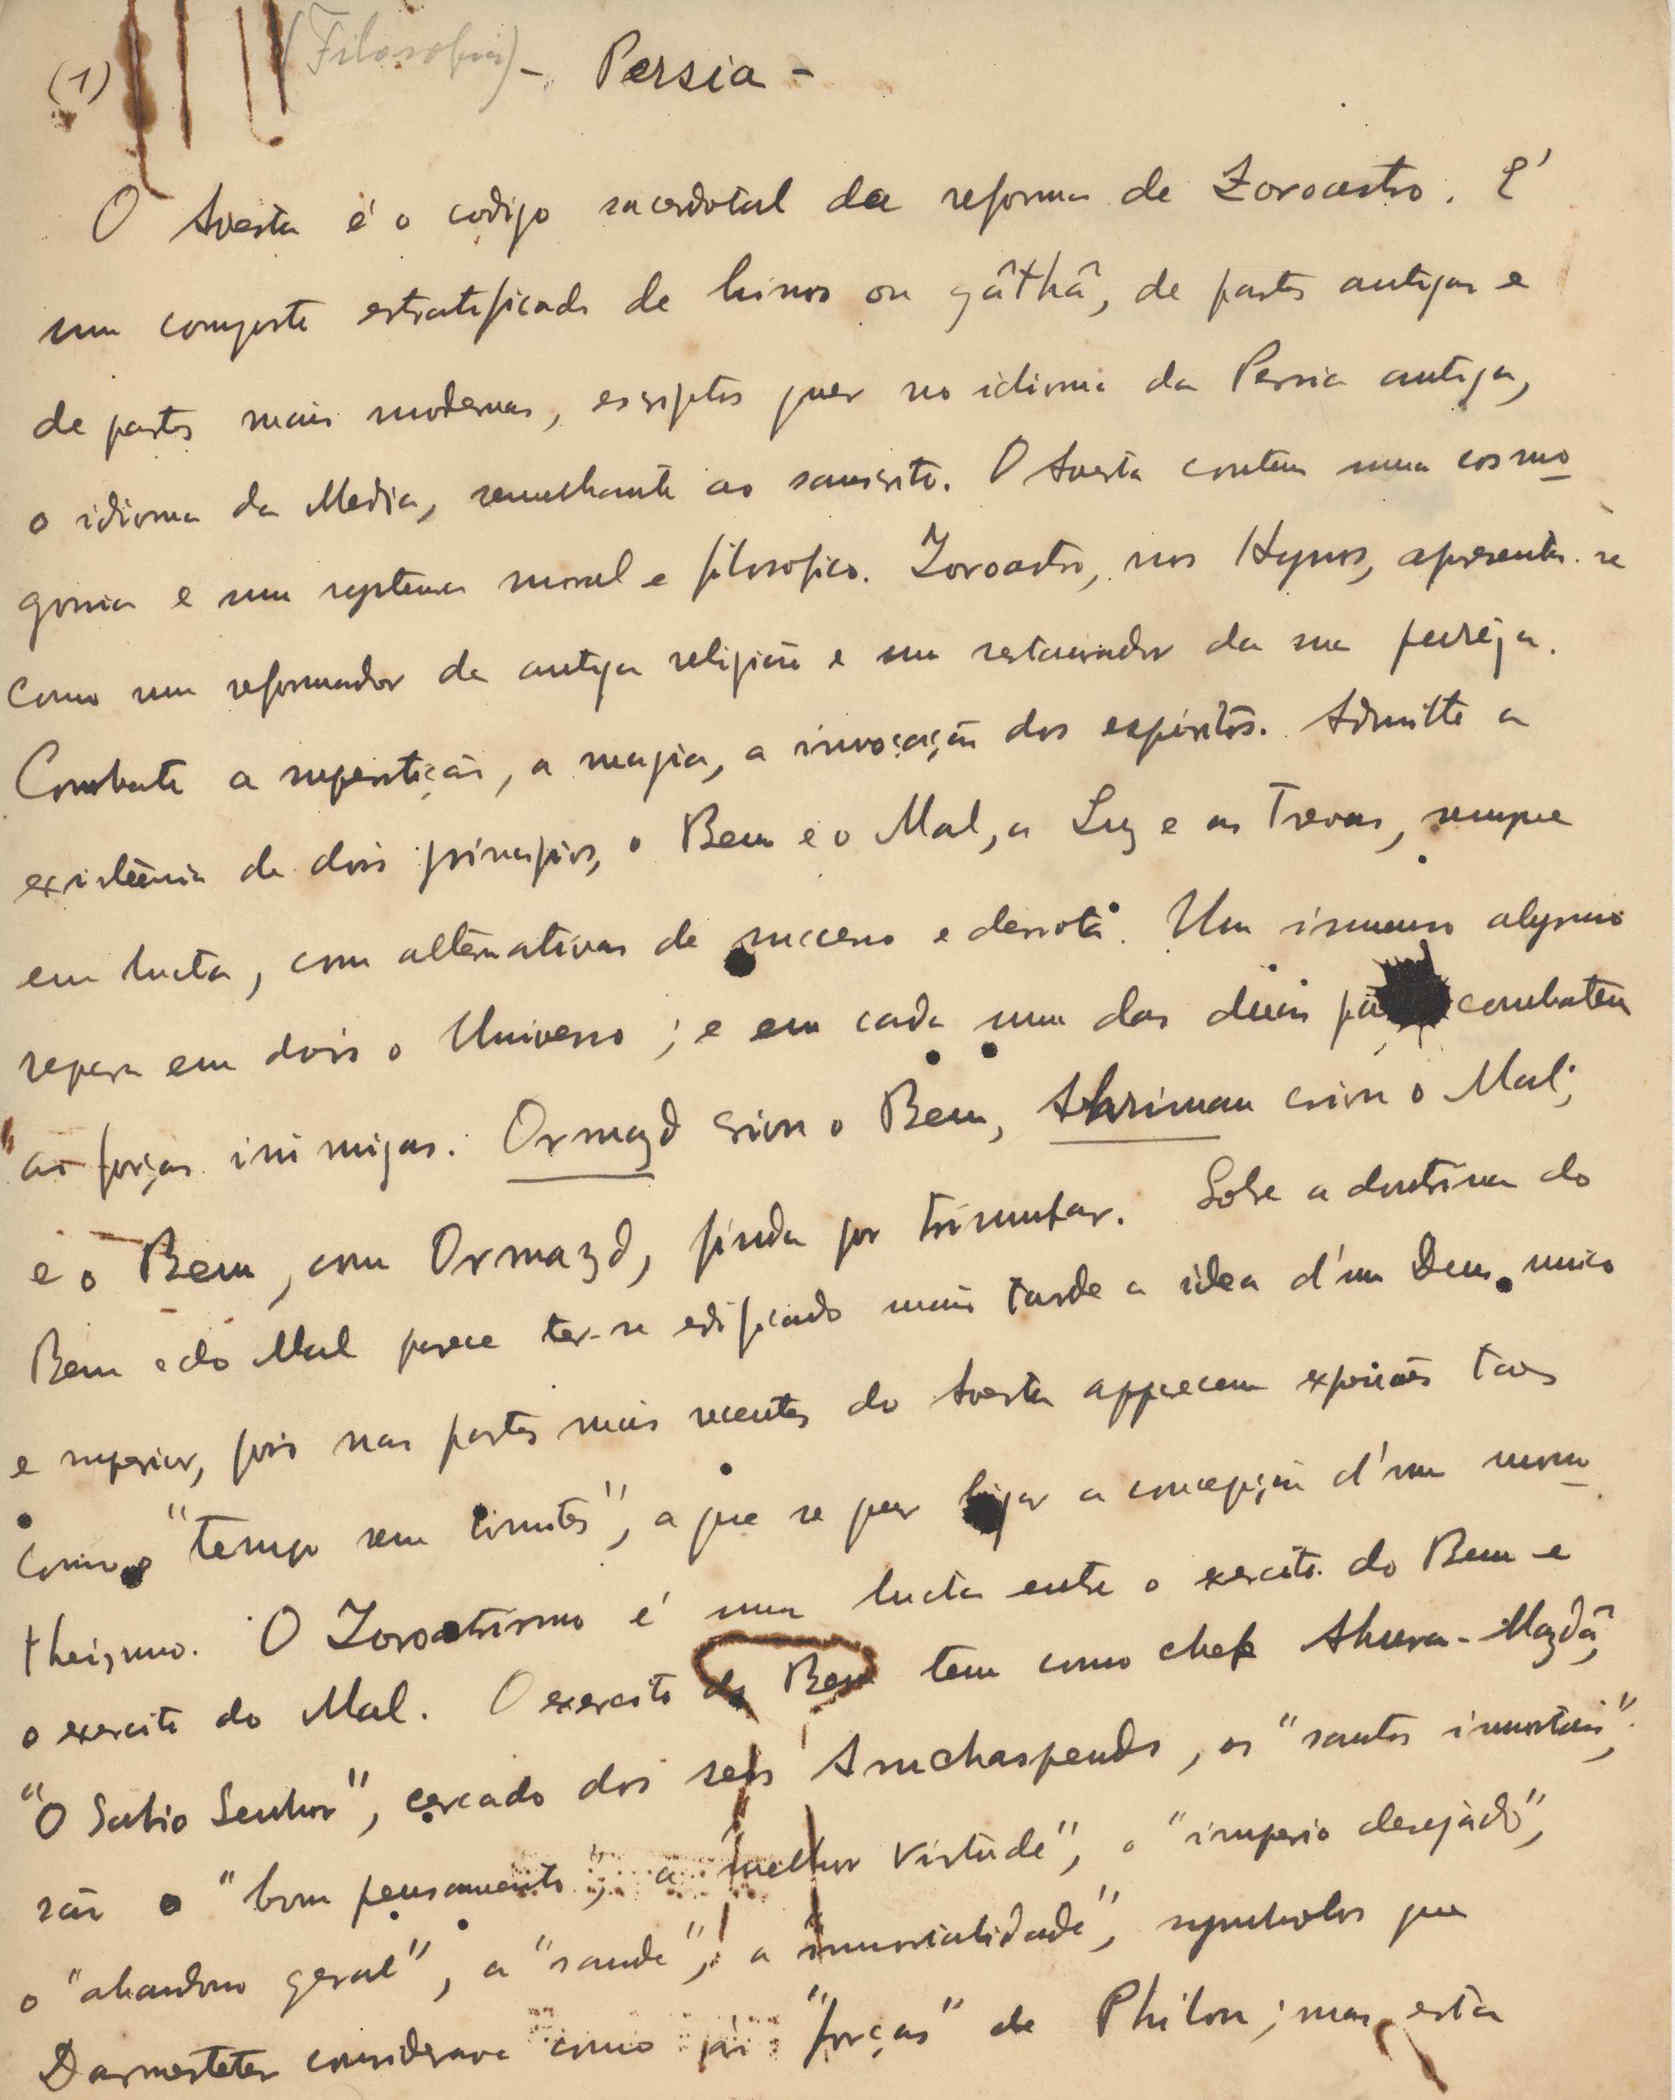 (1) (Filosofia) - Persia -
O Avesta é o codigo sacerdotal da reforma de Zoroastro. E'
um composto estratificado de hinos ou gâthâ, de partes antigas e
de partes mais modernas, escriptos quer no idioma da Persia antiga,
o idioma da Media, semelhante ao sanscrito. O Avesta contem uma cosmo
gonia e um systema moral e filosofico. Zoroastro, nos Hynos, apresenta-se
como um reformador da antiga religião e um restaurador da sua pureza.
Combate a superstição, a magia, a invocação dos espiritos. Admitte a
existencia de dois principios, o Bem e o Mal, a Luz e as Trevas, sempre
em lucta, com alternativas de successo e derrota. Um immenso abysmo
separa em dois o Universo; e em cada uma das duas combatem
as forças inimigas. Ormazd criou o Bem, Ahriman criou o Mal;
e o Bem, com Ormazd, finda por triumfar. Sobre a doutrina do
Bem e do Mal parece ter-se edificado mais tarde a idea d'um Deus unico
e superior, pois nas partes mais recentes do Avesta apparecem expressões taes
como o "tempo sem limites", a que se quer ligar a concepção d'um mono
theismo. O Zoroastrismo é uma lucta entre o exercito do Bem e
o exercito do Mal. O exercito do Bem tem como chefe Ahura-Mazdâ,
"O Sabio Senhor", cercado dos seis Amchaspends, os "santos immortais",
são o "bom pensamento", a "melhor virtude", o "imperio desejado",
o "abandono geral", a "saude", a "immortalidade", symbolos que
Darmesteter considerava como as "forças" de Philon; mas esta